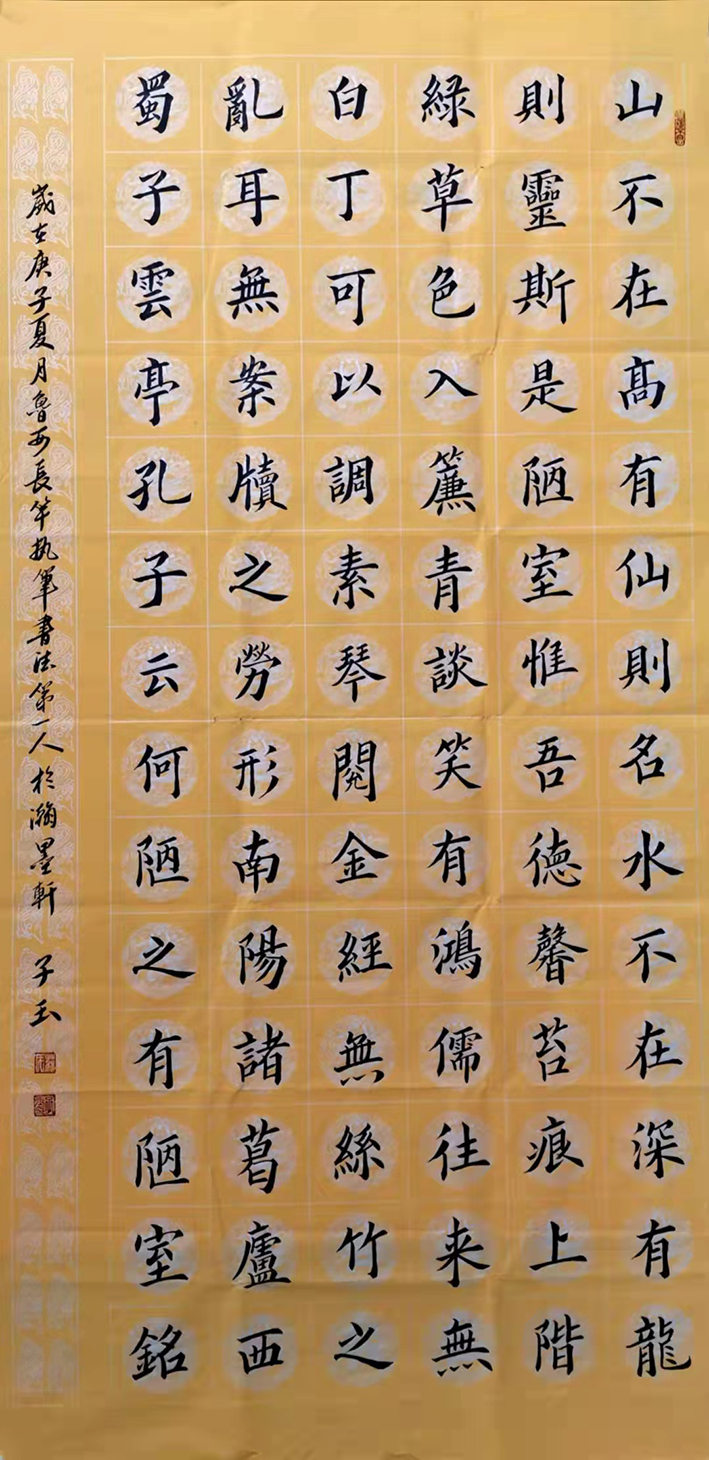 山不在高有仙則名水不在深有龍
則靈斯是陋室惟吾德馨苔痕上階
綠草色入簾青談笑有鴻儒往来無
白丁可以調素琴閱金經無絲竹之
亂耳無案牘之勞形南陽諸葛廬西
蜀子雲亭孔子云何陋之有陋室銘
歲在庚子夏月魯西長竿执筆書法第一人於瀚墨軒 子玉